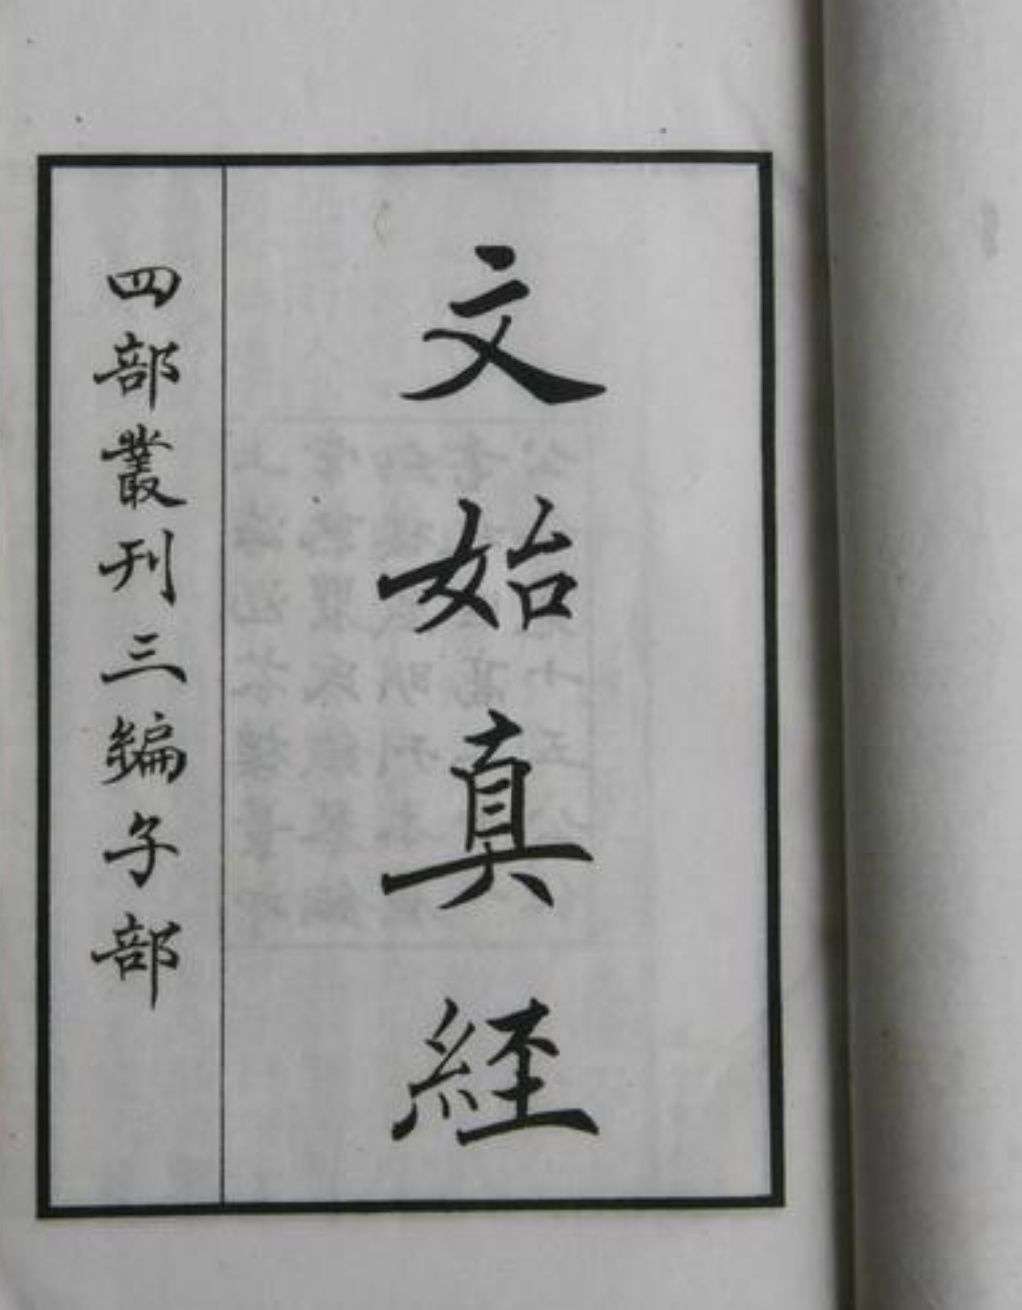 文始真經
四部叢刊三編子部